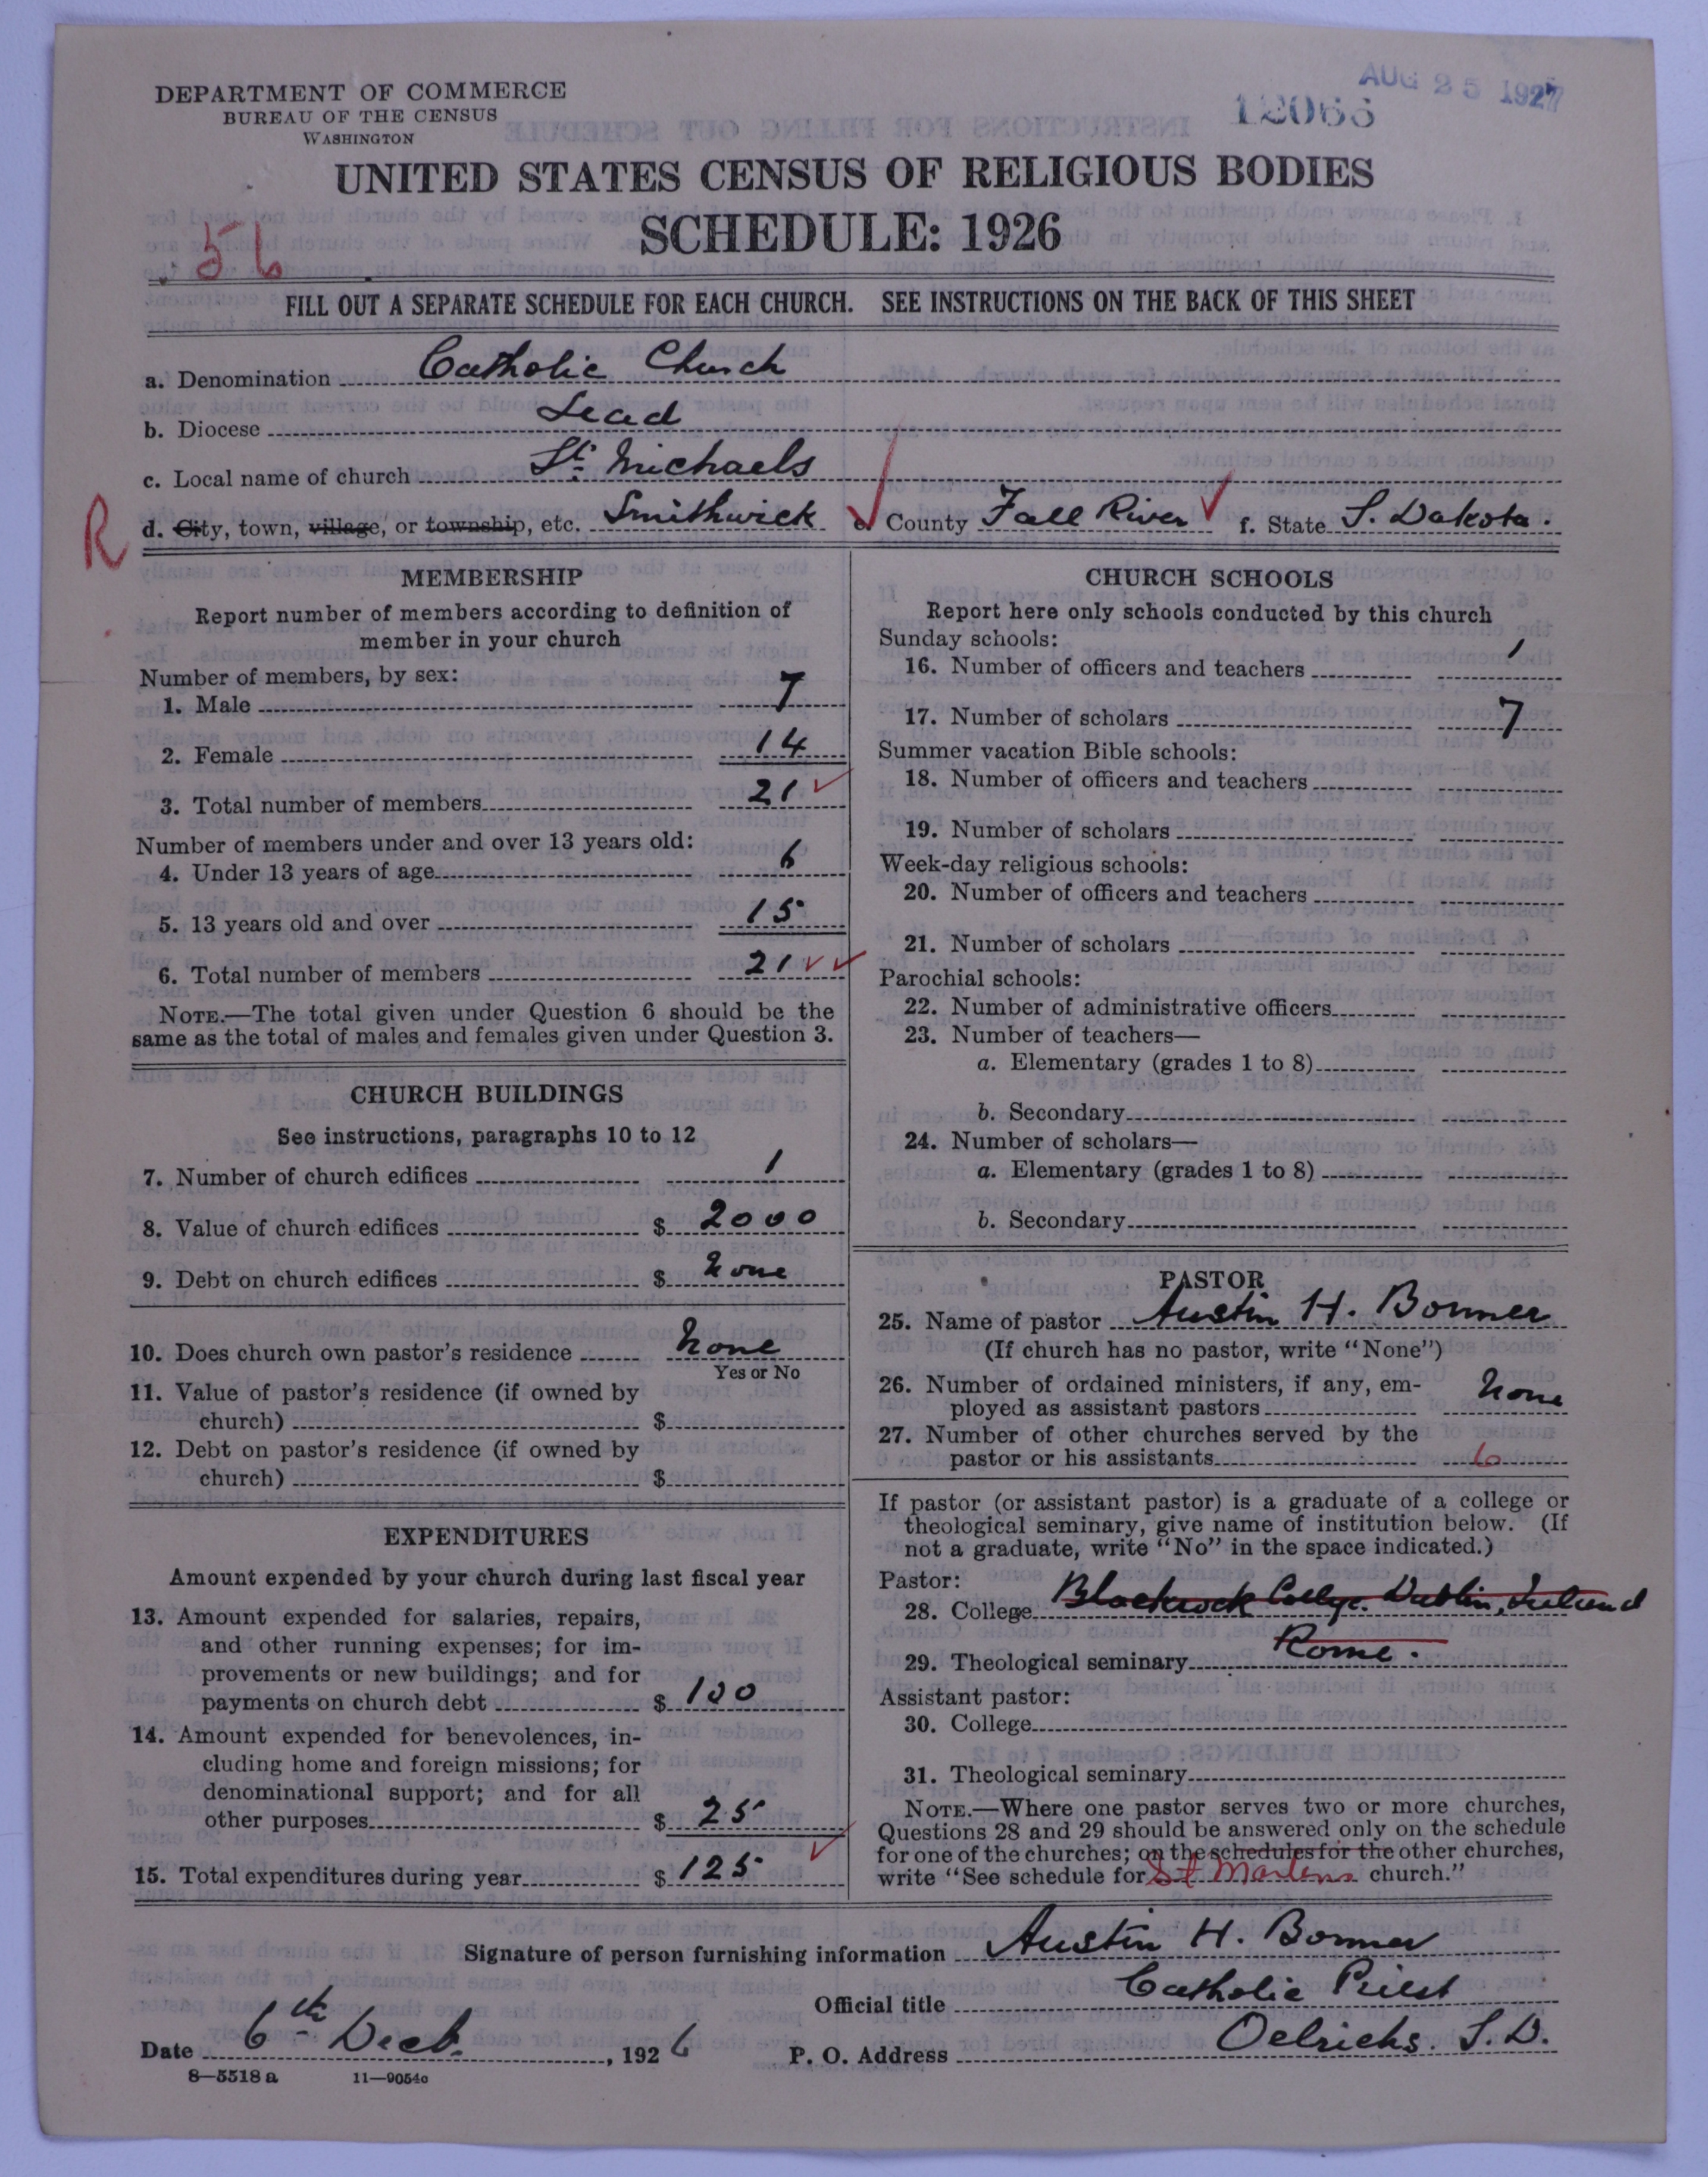 DEPARTMENT OF COMMERCE
BUREAU OF THE CENSUS
WASHINGTON
AUG 25 1927
12066
UNITED STATES CENSUS OF RELIGIOUS BODIES
SCHEDULE: 1926
56
FILL OUT A SEPARATE SCHEDULE FOR EACH CHURCH. SEE INSTRUCTIONS ON THE BACK OF THIS SHEET
a. Denomination Catholic Church
b. Diocese Lead
c. Local name of church St. Michaels
R
d. City, town, village, or township, etc. Smithwick e. County Fall River f. State S. Dakota.
MEMBERSHIP
Report number of members according to definition of
member in your church
Number of members, by sex:
1. Male 7
2. Female 14
3. Total number of members 21
Number of members under and over 13 years old:
4. Under 13 years of age 6
5. 13 years old and over 15
6. Total number of members 21
NOTE.—The total given under Question 6 should be the
same as the total of males and females given under Question 3.
CHURCH BUILDINGS
See instructions, paragraphs 10 to 12
7. Number of church edifices 1
8. Value of church edifices $ 2000
9. Debt on church edifices $ None
10. Does church own pastor's residence None
Yes or No
11. Value of pastor's residence (if owned by
church) $
12. Debt on pastor's residence (if owned by
church) $
EXPENDITURES
Amount expended by your church during last fiscal year
13. Amount expended for salaries, repairs,
and other running expenses; for im-
provements or new buildings; and for
payments on church debt $ 100
14. Amount expended for benevolences, in-
cluding home and foreign missions; for
denominational support; and for all
other purposes $ 25
15. Total expenditures during year $ 125
CHURCH SCHOOLS
Report here only schools conducted by this church
Sunday schools:
16. Number of officers and teachers 1
17. Number of scholars 7
Summer vacation Bible schools:
18. Number of officers and teachers
19. Number of scholars
Week-day religious schools:
20. Number of officers and teachers
21. Number of scholars
Parochial schools:
22. Number of administrative officers
23. Number of teachers—
a. Elementary (grades 1 to 8)
b. Secondary
24. Number of scholars—
a. Elementary (grades 1 to 8)
b. Secondary
PASTOR
25. Name of pastor Austin H. Bonner
(If church has no pastor, write "None")
26. Number of ordained ministers, if any, em-
ployed as assistant pastors None
27. Number of other churches served by the
pastor or his assistants 6
If pastor (or assistant pastor) is a graduate of a college or
theological seminary, give name of institution below. (If
not a graduate, write "No" in the space indicated.)
Pastor:
28. College Blackrock College. Dublin, Ireland
29. Theological seminary Rome.
Assistant pastor:
30. College
31. Theological seminary
NOTE.—Where one pastor serves two or more churches,
Questions 28 and 29 should be answered only on the schedule
for one of the churches; on the schedules for the other churches,
write "See schedule for St Martens church."
Signature of person furnishing information Austin H. Bonner
Official title Catholic Priest
Date 6th Decb. , 1926 P. O. Address Oelrichs. S.D.
8—5518 a 11—9054c